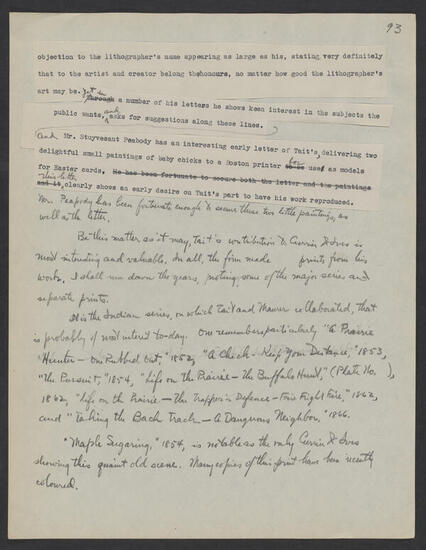 93
objection to the lithographer's name appearing as large as his, stating very definitely
that to the artist and creator belong the honours, no matter how good the lithographer's
art may be. Yet in
through a number of his letters he shows keen interest in the subjects the
public wants, and asks for suggestions along these lines.
And Mr. Stuyvesant Peabody has an interesting early letter of Tait's, delivering two
delightful small paintings of baby chicks to a Boston printer to be used as models
for Easter cards. He has been fortunate to secure both the letter and the paintings
This letter
and it, clearly shows an early desire on Tait's part to have his work reproduced.
Mr. Peabody has been fortunate enough to secure these two little paintings, as
well as the letter.
Be this matter as it may, Tait's contribution to Currier & Ives is
most interesting and valuable. In all, the firm made prints from his
work. I shall run down the years, noting some of the major series and
separate prints.
It is the Indian series, on which Tait and Maurer collaborated, that
is probably of most interest to-day. One remembers particularly "A Prairie
Hunter - One Rubbed Out," 1852, "A Check - Keep Your Distance," 1853,
"The Pursuit," 1856, "Life on the Prairie - The Buffalo Hunt," (Plate No. ),
1862, "Life on the Prairie - The Trapper's Defence - Fire Fight Fire," 1862,
and "Taking the Back Track - A Dangerous Neighbor," 1866.
"Maple Sugaring," 1856, is notable as the only Currier & Ives
showing this quaint old scene. Many copies of this print have been recently
coloured.